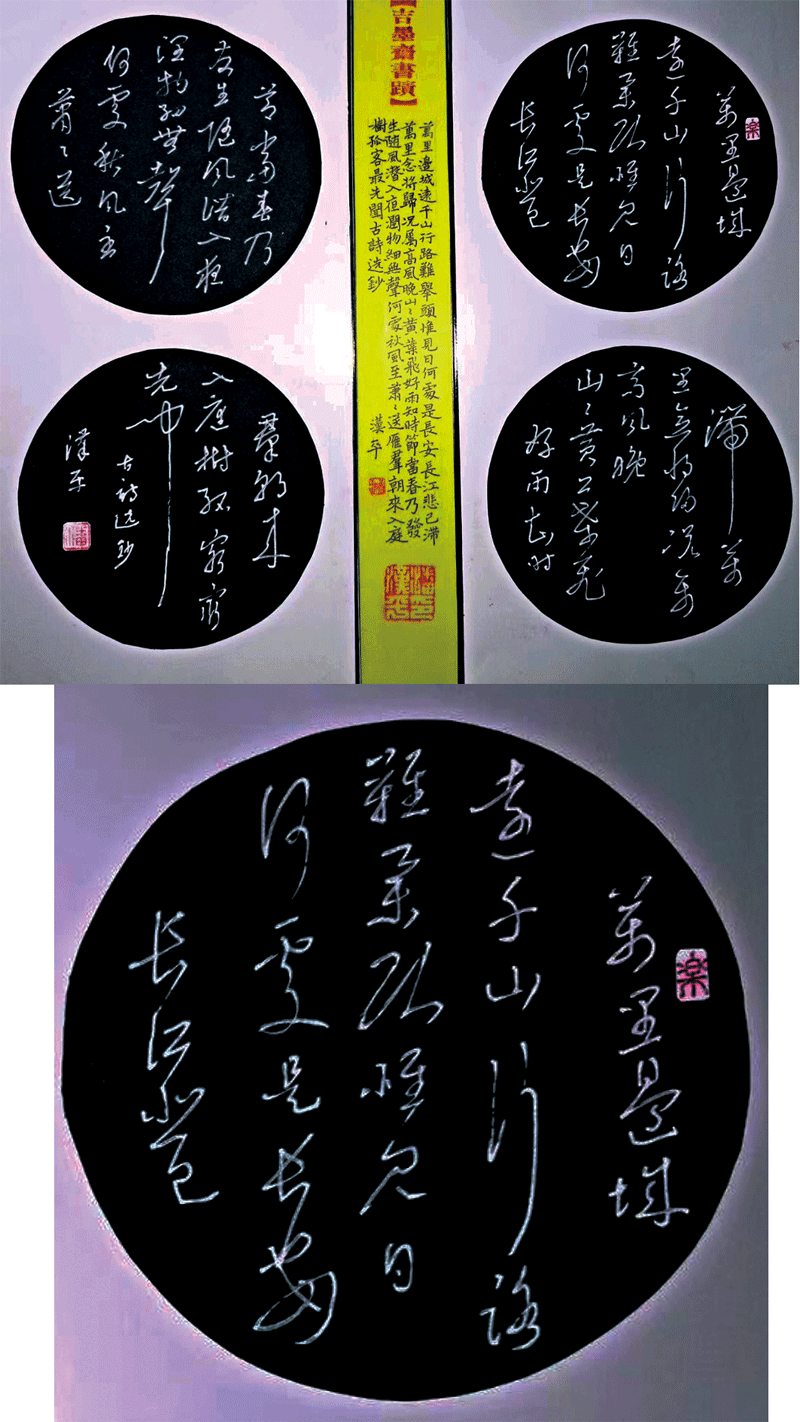 萬里邊城
遠千山行路
難舉頭惟見日
何處是長安
長江悲已
滯萬
里念將歸況屬
高風晚
山〻黃葉飛
好雨知時
【吉墨齋書蹟】
萬里邊城遠千山行路難舉頭惟見日何處是長安長江悲已滯
萬里念將歸況屬高風晚山〻黃葉飛好雨知時節當春乃發
生随風潛入夜潤物細無聲何處秋風至蕭〻送雁羣朝來入庭
樹孤客最先聞古詩选鈔
漢平
節當春乃
發生随風潛入夜
潤物細無聲
何處秋風至
蕭〻送
羣朝來
入庭樹孤客最
先聞
古詩选鈔
漢平
萬里邊城
遠千山行路
難舉頭惟見日
何處是長安
長江悲已